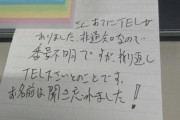 あてにTELが
ありました。非通知なので
番号不明ですが折り返し
TEL下さいとのことです。
お名前は聞き忘れました!!